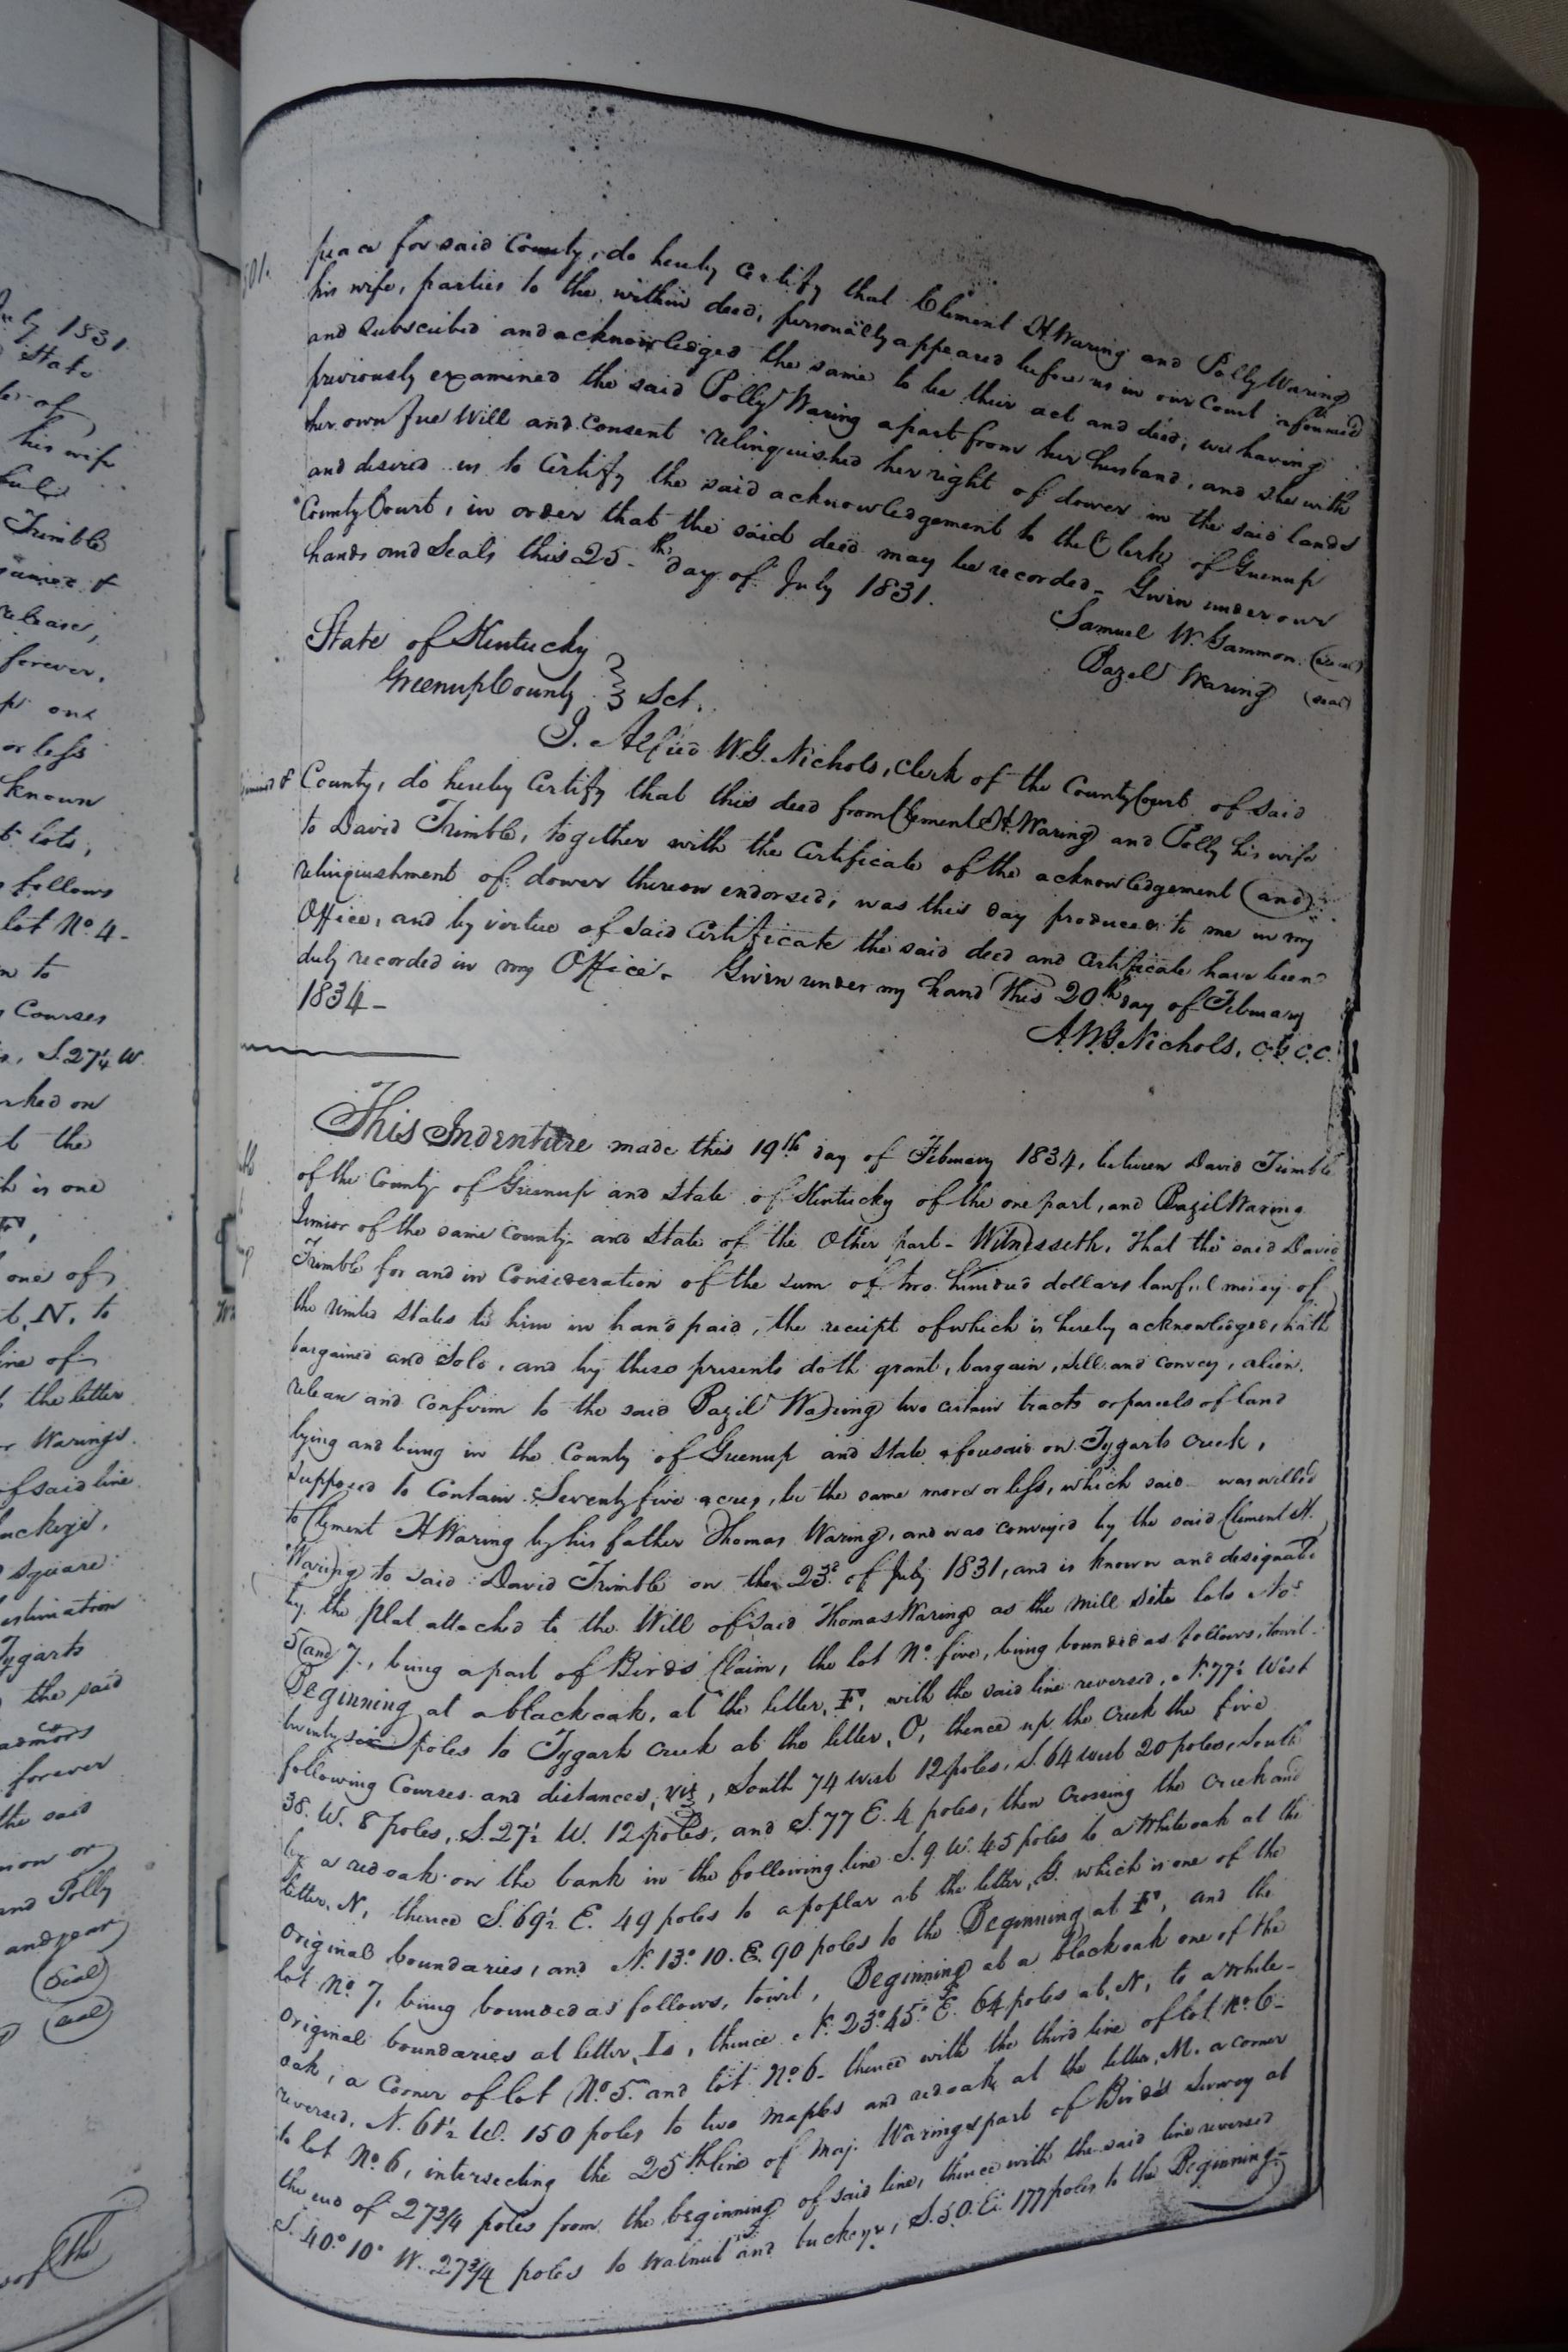 July 1831.
State
his wife
Trimble
release,
forever.
one
or less
known
lots,
follows
lot No. 4-
to
Courses
S. 27¼ W.
on
the
is one
one of
N, to
line of
the letter
Warings.
of said line
buckeye,
square
estimation
Tygarts
the said
admors
forever
the said
or
and Polly
and year
(Seal)
(Seal)
peace for said County, do hereby certify that Clement H. Waring and Polly Waring
his wife, parties to the within deed, personally appeared before us in our Court aforesaid
and subscribed and acknowledged the same to be their act and deed, we having
previously examined the said Polly Waring apart from her husband, and she with
her own free Will and consent relinquished her right of dower in the said lands
and desired us to Certify the said acknowledgement to the Clerk of Greenup
County Court, in order that the said deed may be recorded_ Given under our
hands and Seals this 25th day of July 1831.
Samuel W. Gammon. (seal)
Bazel Waring (seal)
State of Kentucky }
Greenup County } Sct.
I. Alfred W. G. Nichols, Clerk of the County Court of said
County, do hereby Certify that this deed from Clement H. Waring and Polly his wife
to David Trimble, together with the Certificate of the acknowledgement (and)
relinquishment of dower thereon endorsed, was this day produced to me in my
Office, and by virtue of said Certificate the said deed and Certificate have been
duly recorded in my Office. Given under my hand this 20th day of February
1834_
A.W.G. Nichols, C.G.C.C.
This Indenture made this 19th day of February 1834, between David Trimble
of the County of Greenup and State of Kentucky of the one part, and Bazil Waring
Junior of the same County and State of the Other part_ Witnesseth, that the said David
Trimble for and in Consideration of the sum of two hundred dollars lawful money of
the united States to him in hand paid, the receipt of which is hereby acknowledged, hath
bargained and Sold, and by these presents doth grant, bargain, sell and convey, alien,
release and confirm to the said Bazil Waring two certain tracts or parcels of land
lying and being in the County of Greenup and State aforesaid on Tygarts creek,
supposed to Contain Seventy five acres, be the same more or less, which said was willed
to Clement H Waring by his father Thomas Waring, and was conveyed by the said Clement H.
Waring to said David Trimble on the 23d of July 1831, and is known and designated
by the plat attached to the Will of said Thomas Waring as the mill site lots Nos
5 and 7., being a part of Birds Claim, the lot No. five, being bounded as follows, towit_
Beginning at a black oak, at the letter, F, with the said line reversed, N. 77½ West
twenty six poles to Tygarts creek at the letter, O, thence up the creek the five
following Courses and distances, viz, South 74 west 12 poles, S. 64 west 20 poles, South
38. W. 8 poles, S. 27½ W. 12 poles, and S. 77 E. 4 poles, then crossing the creek and
by a red oak on the bank in the following line S. 9 W. 45 poles to a White oak at the
letter, N, thence S. 69½ E. 49 poles to a poplar at the letter, G. which is one of the
original boundaries, and N. 13° 10. E. 90 poles to the Beginning at F, and the
lot No. 7, being bounded as follows, towit, Beginning at a black oak one of the
original boundaries at letter, I, thence N. 23° 45' E. 64 poles at, N, to a white-
oak, a corner of lot No. 5. and lot No. 6- thence with the third line of lot No. 6-
reversed, N. 61½ W. 150 poles to two maples and red oak, at the letter, M. a corner
to lot No. 6, intersecting the 25th line of Maj. Warings part of Birds Survey at
the end of 27¾ poles from the beginning of said line, thence with the said line reversed
S. 40° 10' W. 27¾ poles to walnut and buckeye, S. 50. E. 177 poles to the Beginning_